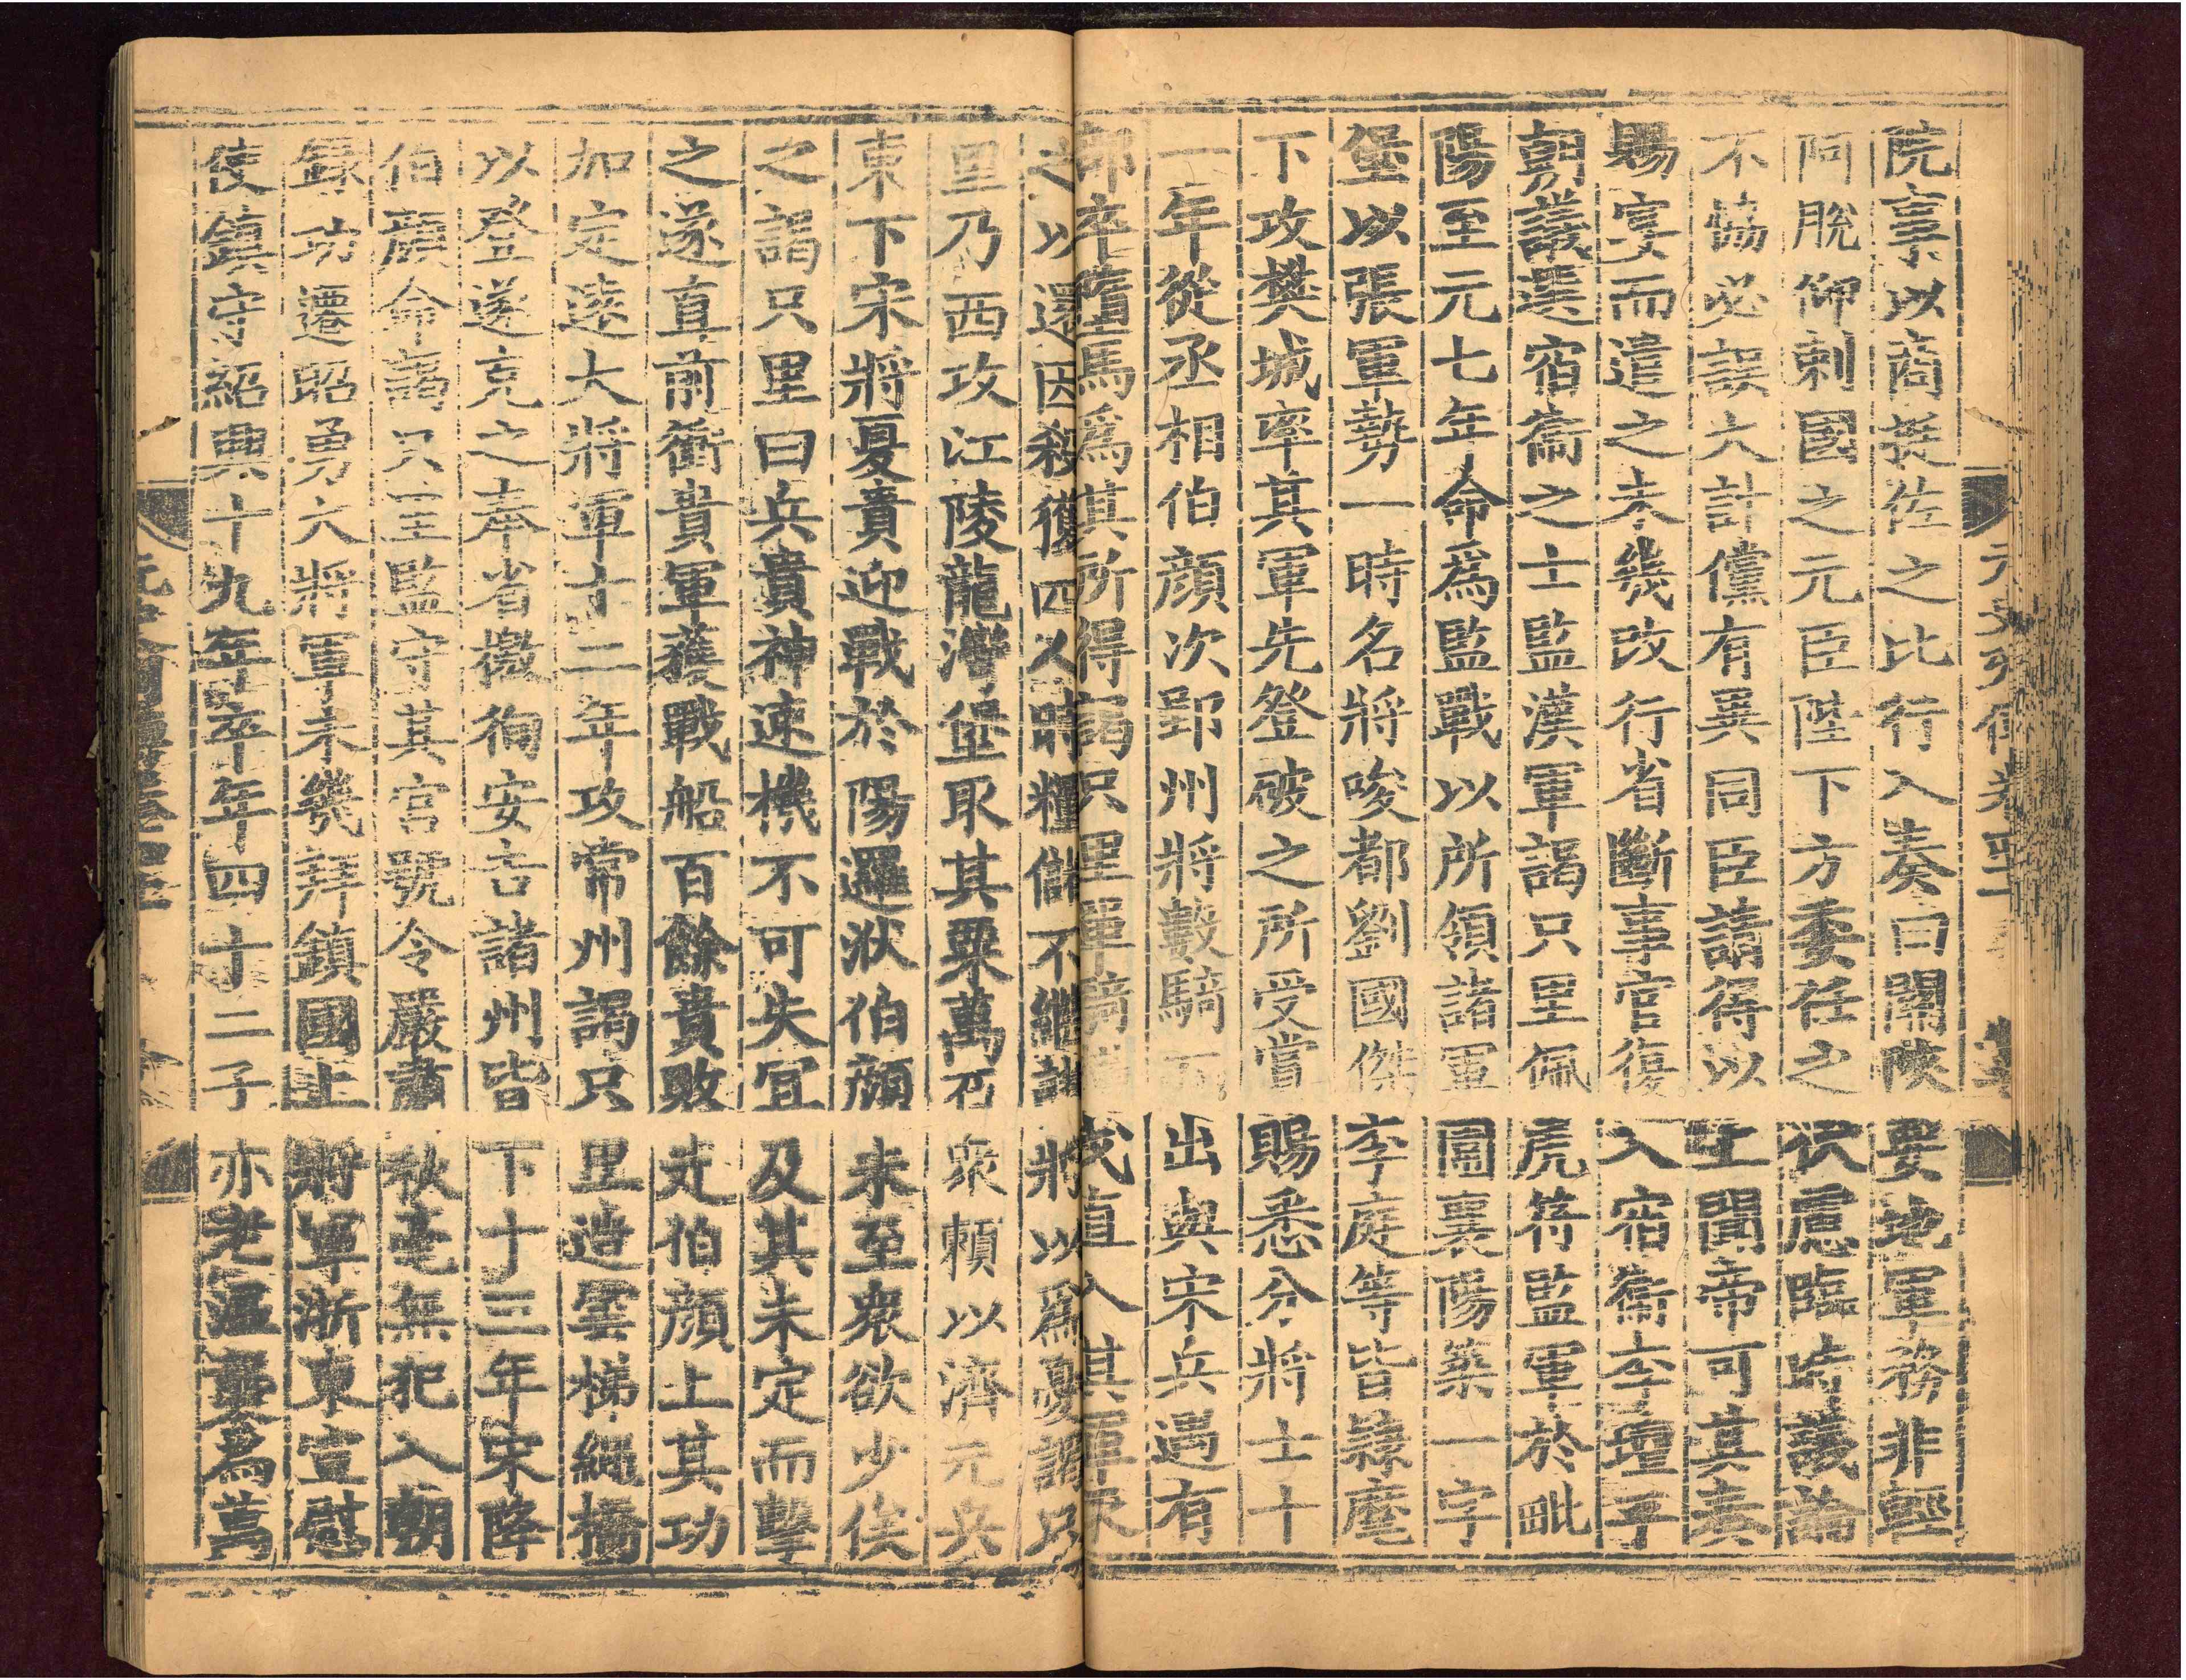 元史列傳卷四十一
院事以商挺佐之比行入奏曰關陝要地軍務非輕
阿脫仰剌國之元臣陛下方委任之伏慮臨時議論
不協必誤大計儻有異同臣請得以上聞帝可其奏
賜宴而遣之未幾改行省斷事官復入宿衛李璮平
朝議選宿衛之士監漢軍謁只里佩虎符監軍於毗
陽至元七年命爲監戰以所領諸軍圍襄陽築一字
堡以張軍勢一時名將唆都劉國傑李庭等皆隸麾
下攻樊城率其軍先登破之所受賞賜悉分將士十
一年從丞相伯顏次郢州將數騎而出與宋兵遇有
部卒墮馬爲其所得謁只里單騎戈直入其軍
之以還因殺獲四人時糧儲不繼諸將以爲憂謁只
里乃西攻江陵龍灣堡取其粟萬石衆賴以濟元兵
東下宋將夏貴迎戰於陽邏洑伯顏未至衆欲少俟
之謁只里曰兵貴神速機不可失宜及其未定而擊
之遂直前衝貴軍獲戰船百餘貴敗走伯顏上其功
加定遠大將軍十二年攻常州謁只里造雲梯繩橋
以登遂克之奉省檄徇安吉諸州皆下十三年宋降
伯顏命謁只里監守其宮號令嚴肅秋毫無犯入朝
錄功遷昭勇大將軍未幾拜鎮國上將軍浙東宣慰
使鎮守紹興十九年卒年四十二子亦老溫襲爲萬